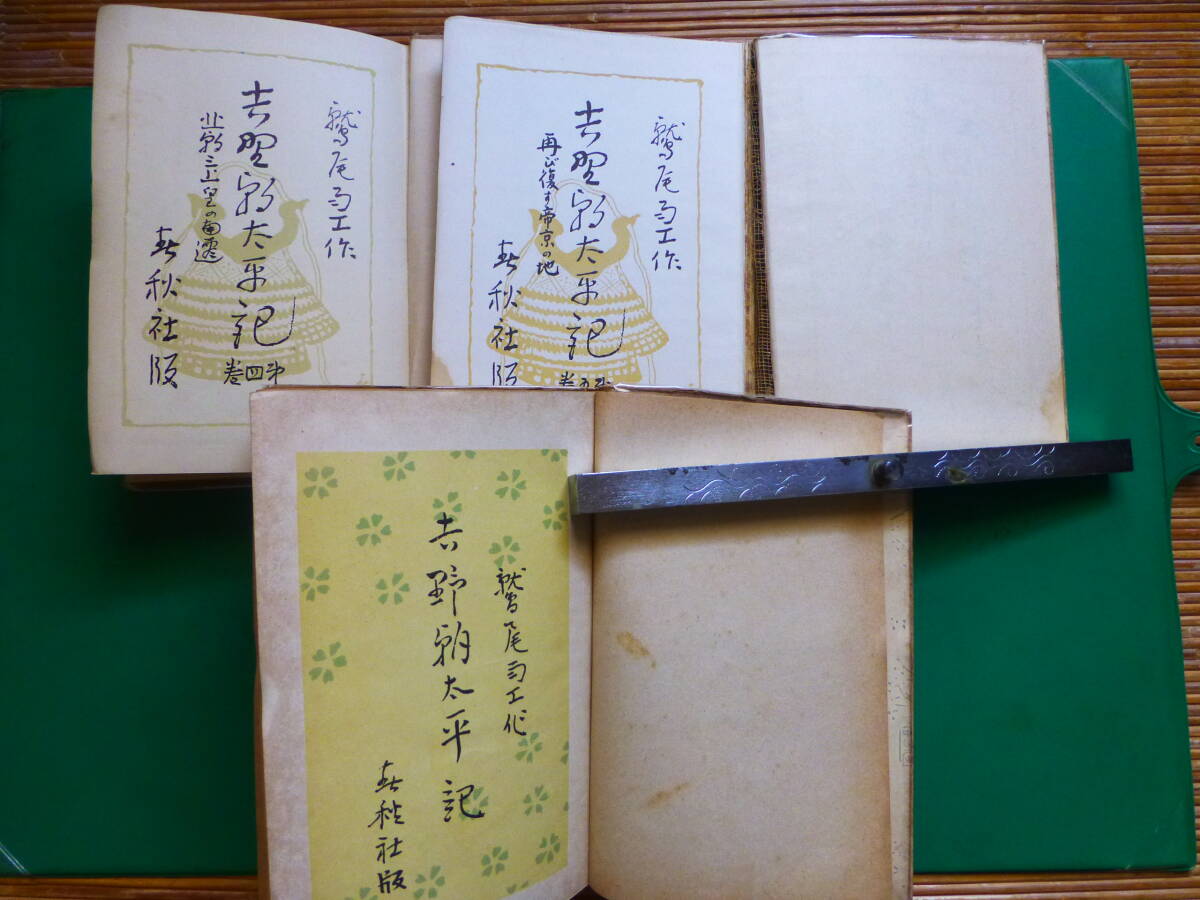 鷲尾雨工作
吉野朝太平記
北朝三上皇の南遷
第四巻
春秋社版
鷲尾雨工作
吉野朝太平記
再び復す帝京の地
第五巻
春秋社版
鷲尾雨工作
吉野朝太平記
春秋社版